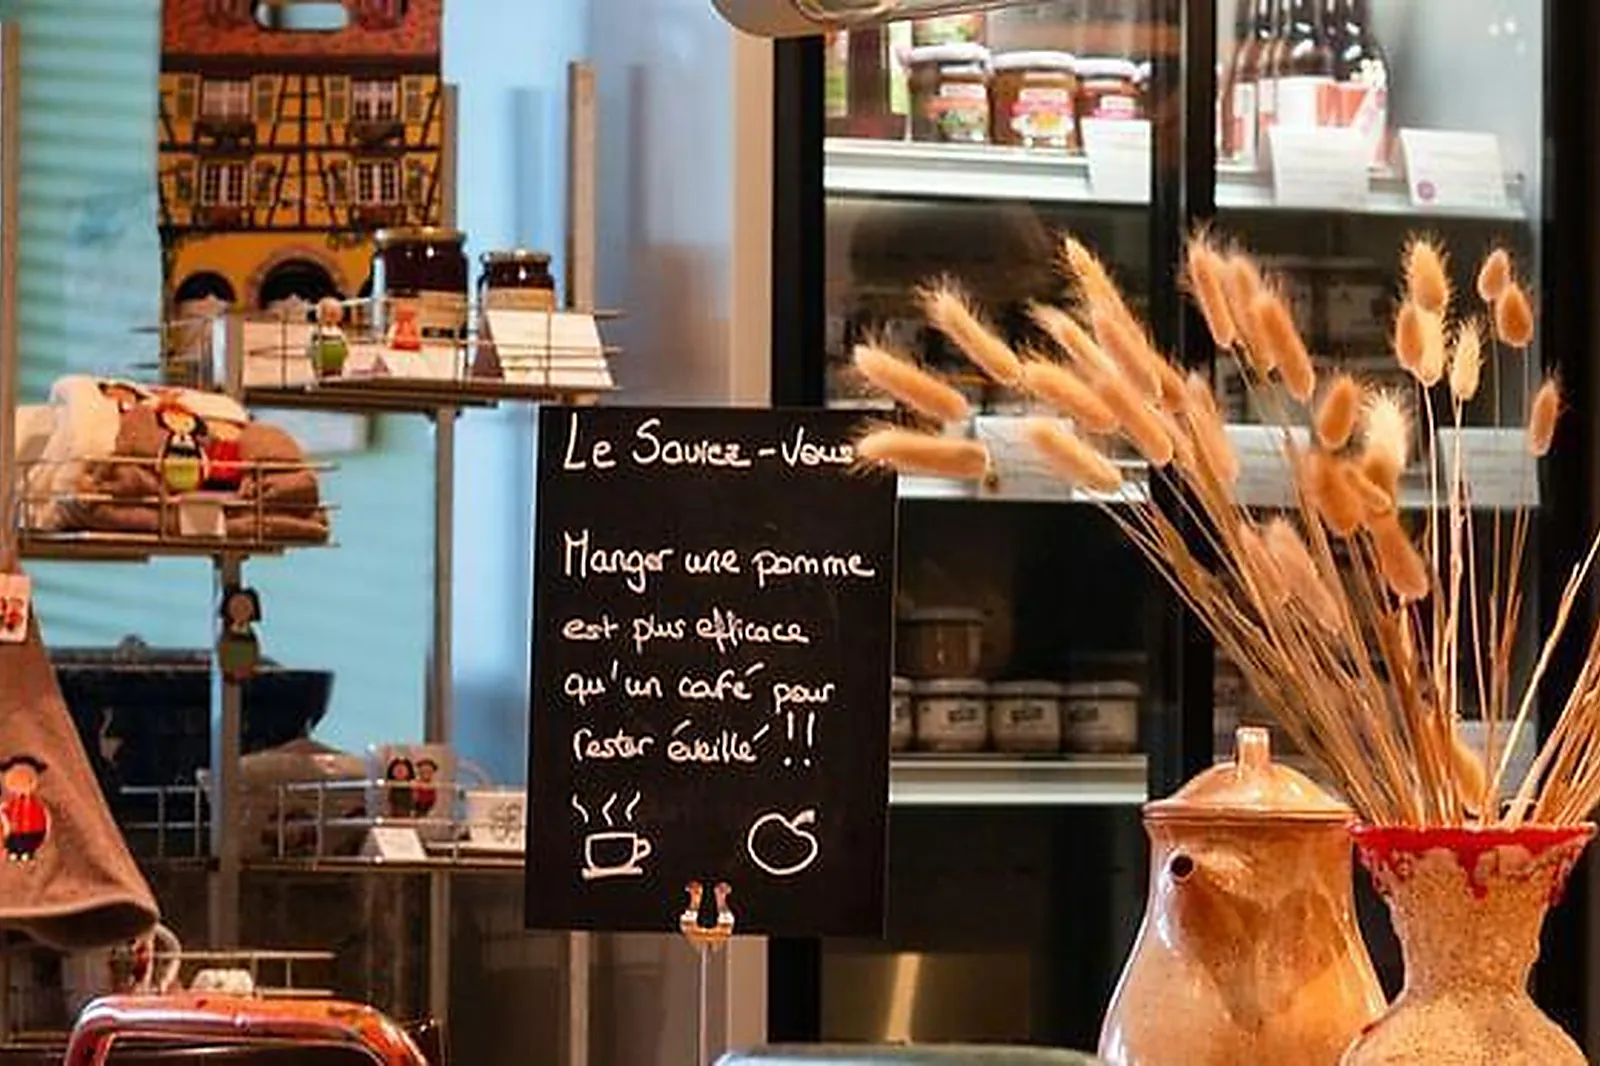 Le Saviez-Vous
Manger une pomme
est plus efficace
qu'un café pour
rester éveillé !!